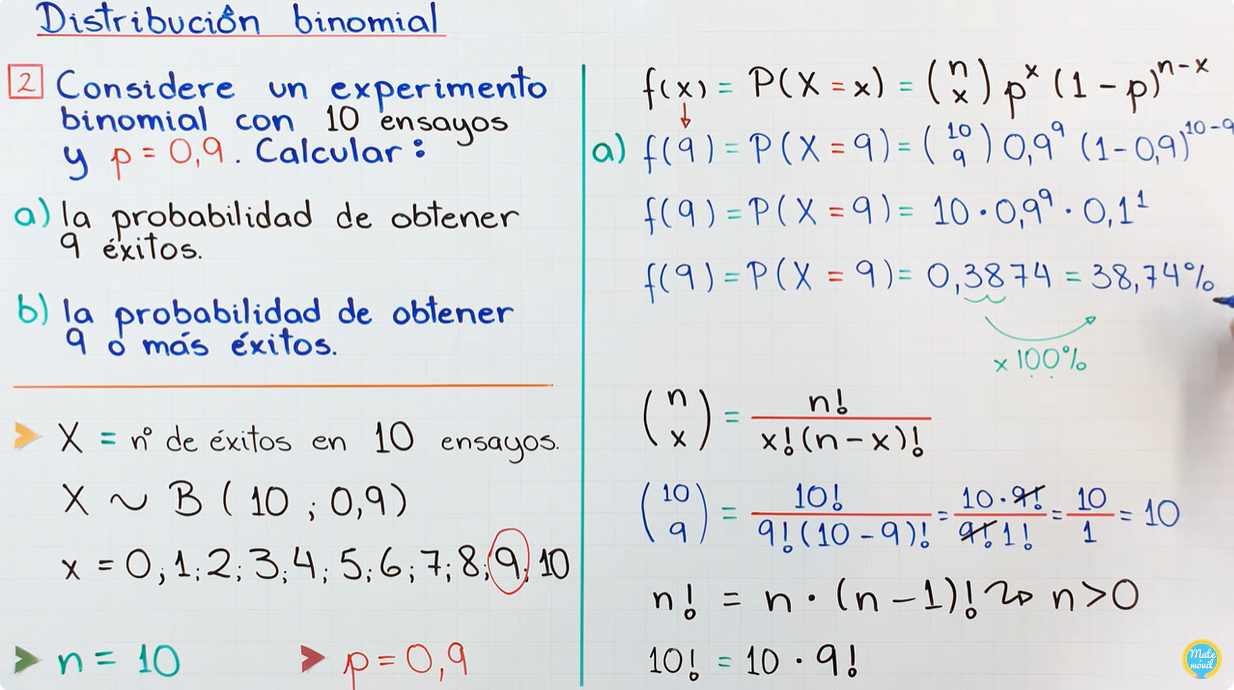 Distribución binomial
2 Considere un experimento
binomial con 10 ensayos
y p = 0,9. Calcular:
a) la probabilidad de obtener
9 éxitos.
b) la probabilidad de obtener
9 o más éxitos.
X = nº de éxitos en 10 ensayos.
X ~ B (10 ; 0,9)
x = 0; 1; 2; 3; 4; 5; 6; 7; 8; 9; 10
n = 10
p = 0,9
f(x) = P(X = x) = (n x) p^x (1 - p)^n-x
a) f(9) = P(X = 9) = (10 9) 0,9^9 (1 - 0,9)^10-9
f(9) = P(X = 9) = 10 · 0,9^9 · 0,1^1
f(9) = P(X = 9) = 0,3874 = 38,74%
x 100%
(n x) = n! / x!(n - x)!
(10 9) = 10! / 9!(10 - 9)! = 10 · 9! / 9! 1! = 10 / 1 = 10
n! = n · (n - 1)! ⇝ n > 0
10! = 10 · 9!
Mate
móvil